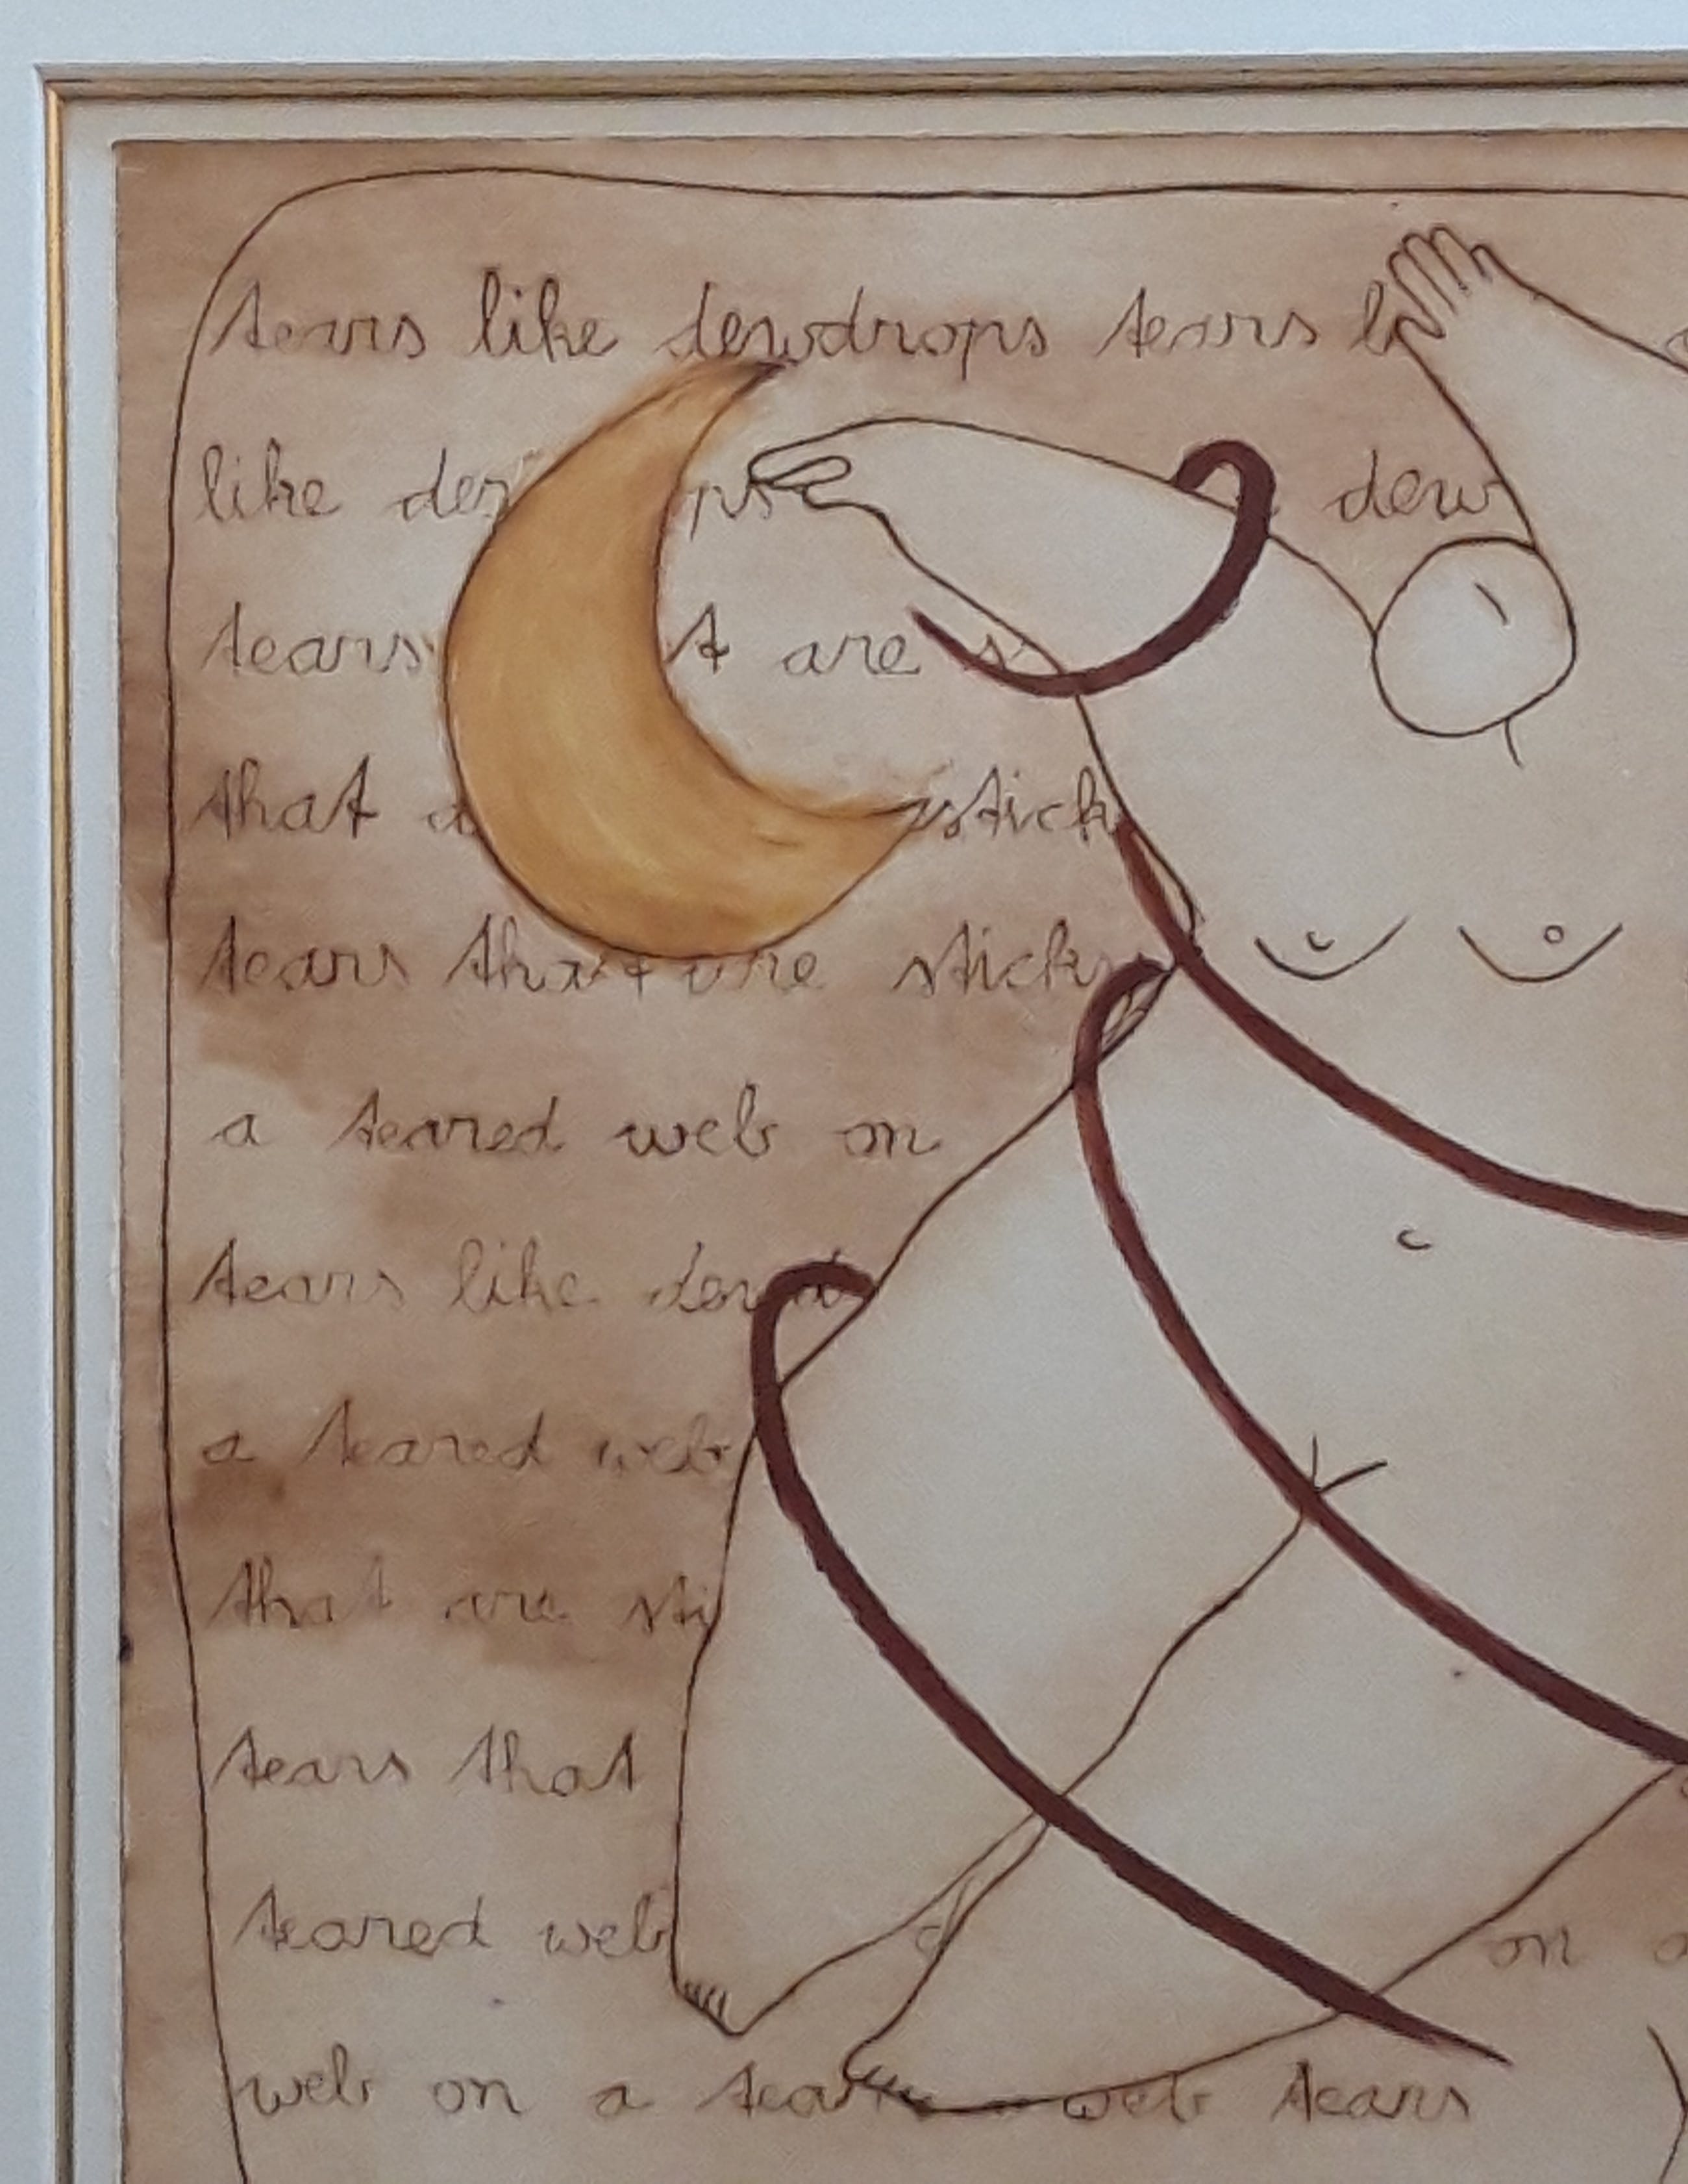 tears like dewdrops tears
like ps dew
tears t are
that stick
tears that are stick
a teared web on
tears like
a teared web
that are sti
tears that
teared web on
web on a web tears